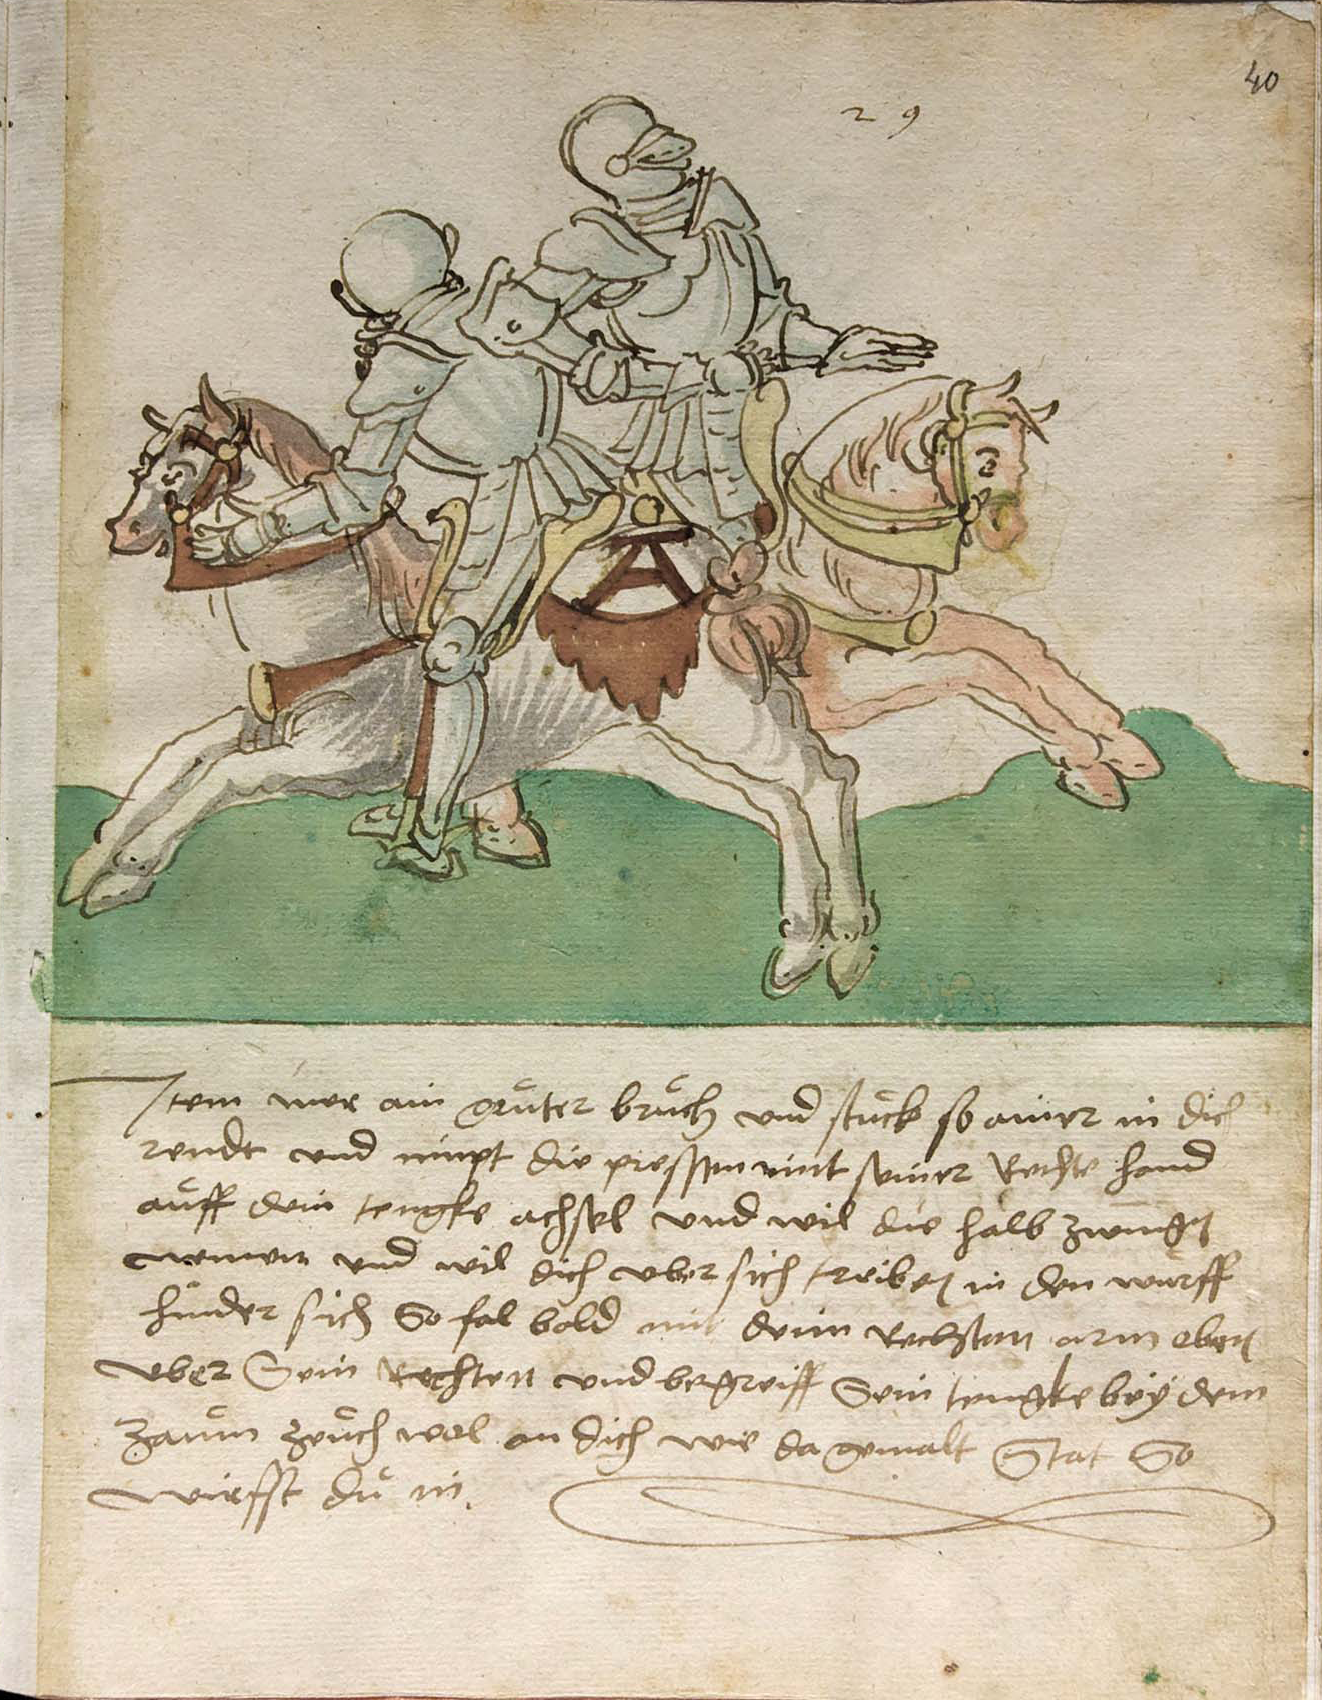 40
29
Item mer ain guter bruch und stuck so ainer in dich
rendt und nimpt die pressen mit seiner Rechte hand
auff dein tengke achsel und wil die halb zwingen
nemen und wil dich uber sich treiben in den wurff
hinder sich So fal bald mit deim Rechten arm oben
uber Sein Rechten und begreiff Sein tengke bey dem
zaum zeuch wol an dich wie da gemalt Stat So
wirfft du in